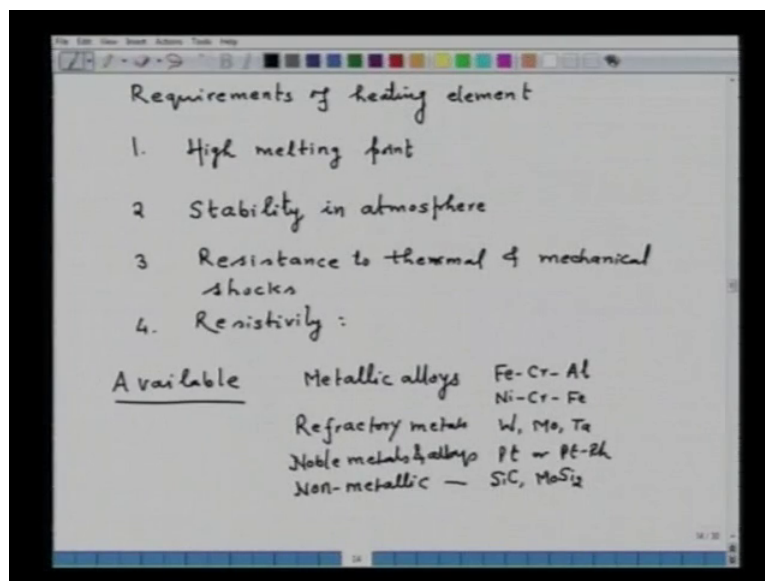 File Edit View Insert Actions Tools Help
Requirements of heating element
1. High melting point
2 Stability in atmosphere
3 Resistance to thermal & mechanical
shocks
4. Resistivity :
Available Metallic alloys Fe-Cr-Al
Ni-Cr-Fe
Refractory metals W, Mo, Ta
Noble metals & alloys Pt or Pt-Rh
Non-metallic — SiC, MoSi2
24